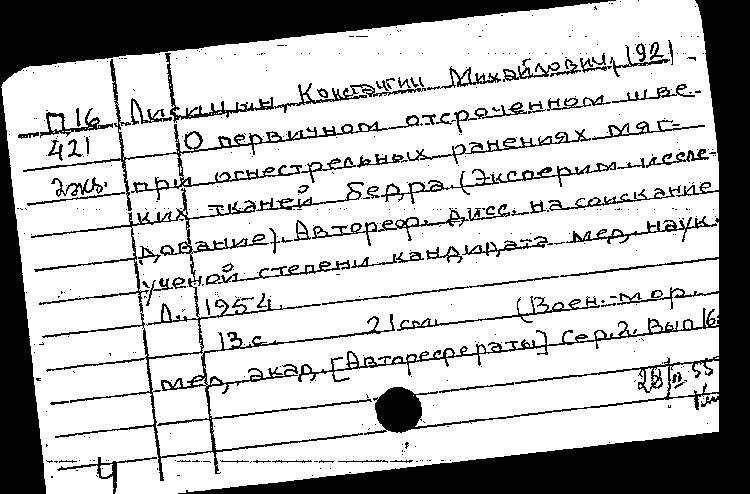 П16 Лисицын, Константин Михайлович, 1921
421 О первичном отсроченном шве
2экз. при огнестрельных ранениях мяг-
ких тканей бедра. (Эксперим. иссле-
дование). Автореф. дисс. на соискание
ученой степени кандидата мед. наук.
Л., 1954.
13 с. 21 см. (Воен.-мор.
мед. акад. [Авторефераты] Сер. 2. Вып 16.
28/II 55
4